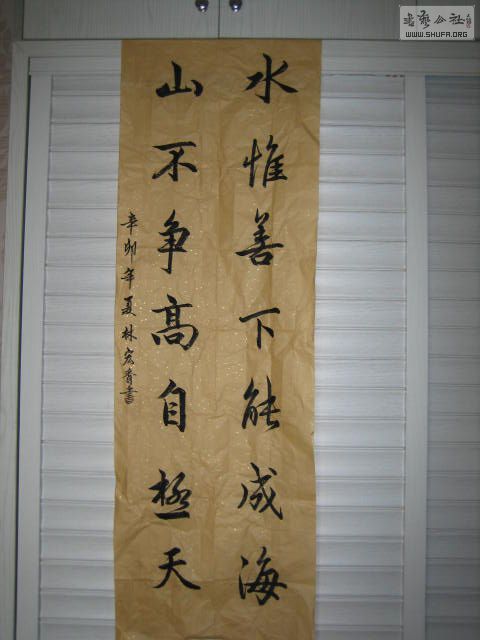 水惟善下能成海
山不争高自極天
辛卯年夏林宏青書
書藝公社
WWW.SHUFA.ORG